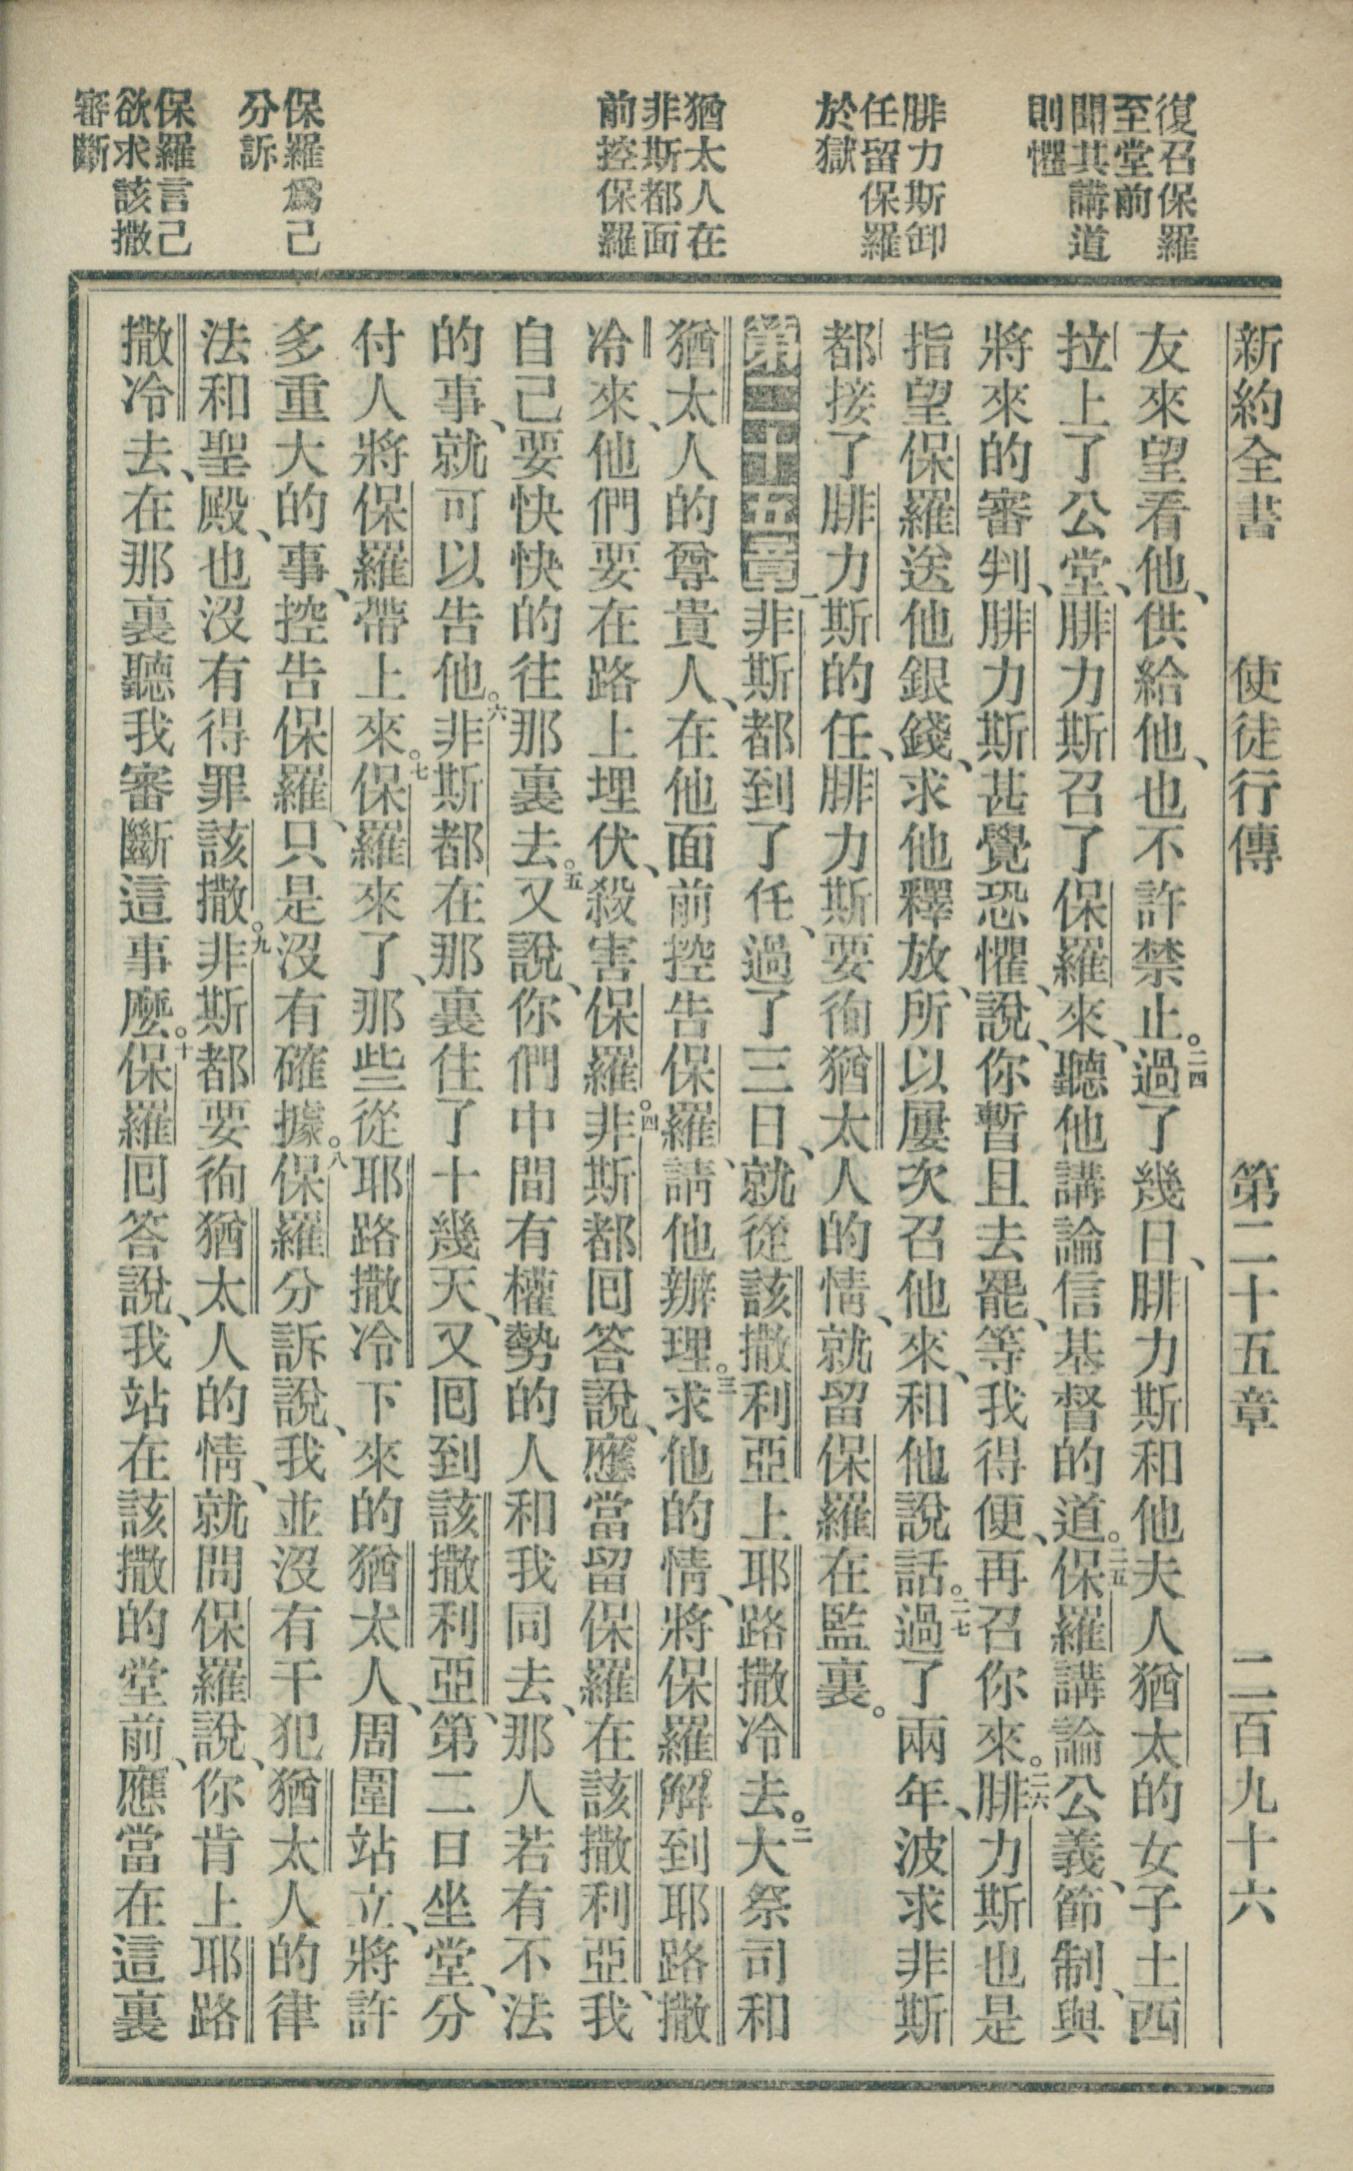 復召保羅
至堂前
聞其講道
則懼
腓力斯卸
任留保羅
於獄
猶太人在
非斯都面
前控保羅
保羅爲己
分訴
保羅言己
欲求該撒
審斷
新約全書 使徒行傳 第二十五章 二百九十六
友來望看他、供給他、也不許禁止。二四過了幾日、腓力斯和他夫人猶太的女子土西
拉上了公堂、腓力斯召了保羅來、聽他講論信基督的道。二五保羅講論公義、節制、與
將來的審判、腓力斯甚覺恐懼、說、你暫且去罷、等我得便、再召你來。二六腓力斯也是
指望保羅送他銀錢、求他釋放、所以屢次召他來、和他說話。二七過了兩年、波求非斯
都接了腓力斯的任、腓力斯要徇猶太人的情、就留保羅在監裏。
第二十五章一非斯都到了任、過了三日、就從該撒利亞上耶路撒冷去。二大祭司和
猶太人的尊貴人、在他面前控告保羅、請他辦理。三求他的情、將保羅解到耶路撒
冷來、他們要在路上埋伏、殺害保羅。四非斯都囘答說、應當留保羅在該撒利亞、我
自己要快快的往那裏去。五又說、你們中間有權勢的人和我同去、那人若有不法
的事、就可以告他。六非斯都在那裏住了十幾天、又囘到該撒利亞、第二日坐堂、分
付人將保羅帶上來。七保羅來了、那些從耶路撒冷下來的猶太人、周圍站立、將許
多重大的事、控告保羅、只是沒有確據。八保羅分訴說、我並沒有干犯猶太人的律
法和聖殿、也沒有得罪該撒。九非斯都要徇猶太人的情、就問保羅說、你肯上耶路
撒冷去、在那裏聽我審斷這事麽。十保羅囘答說、我站在該撒的堂前、應當在這裏